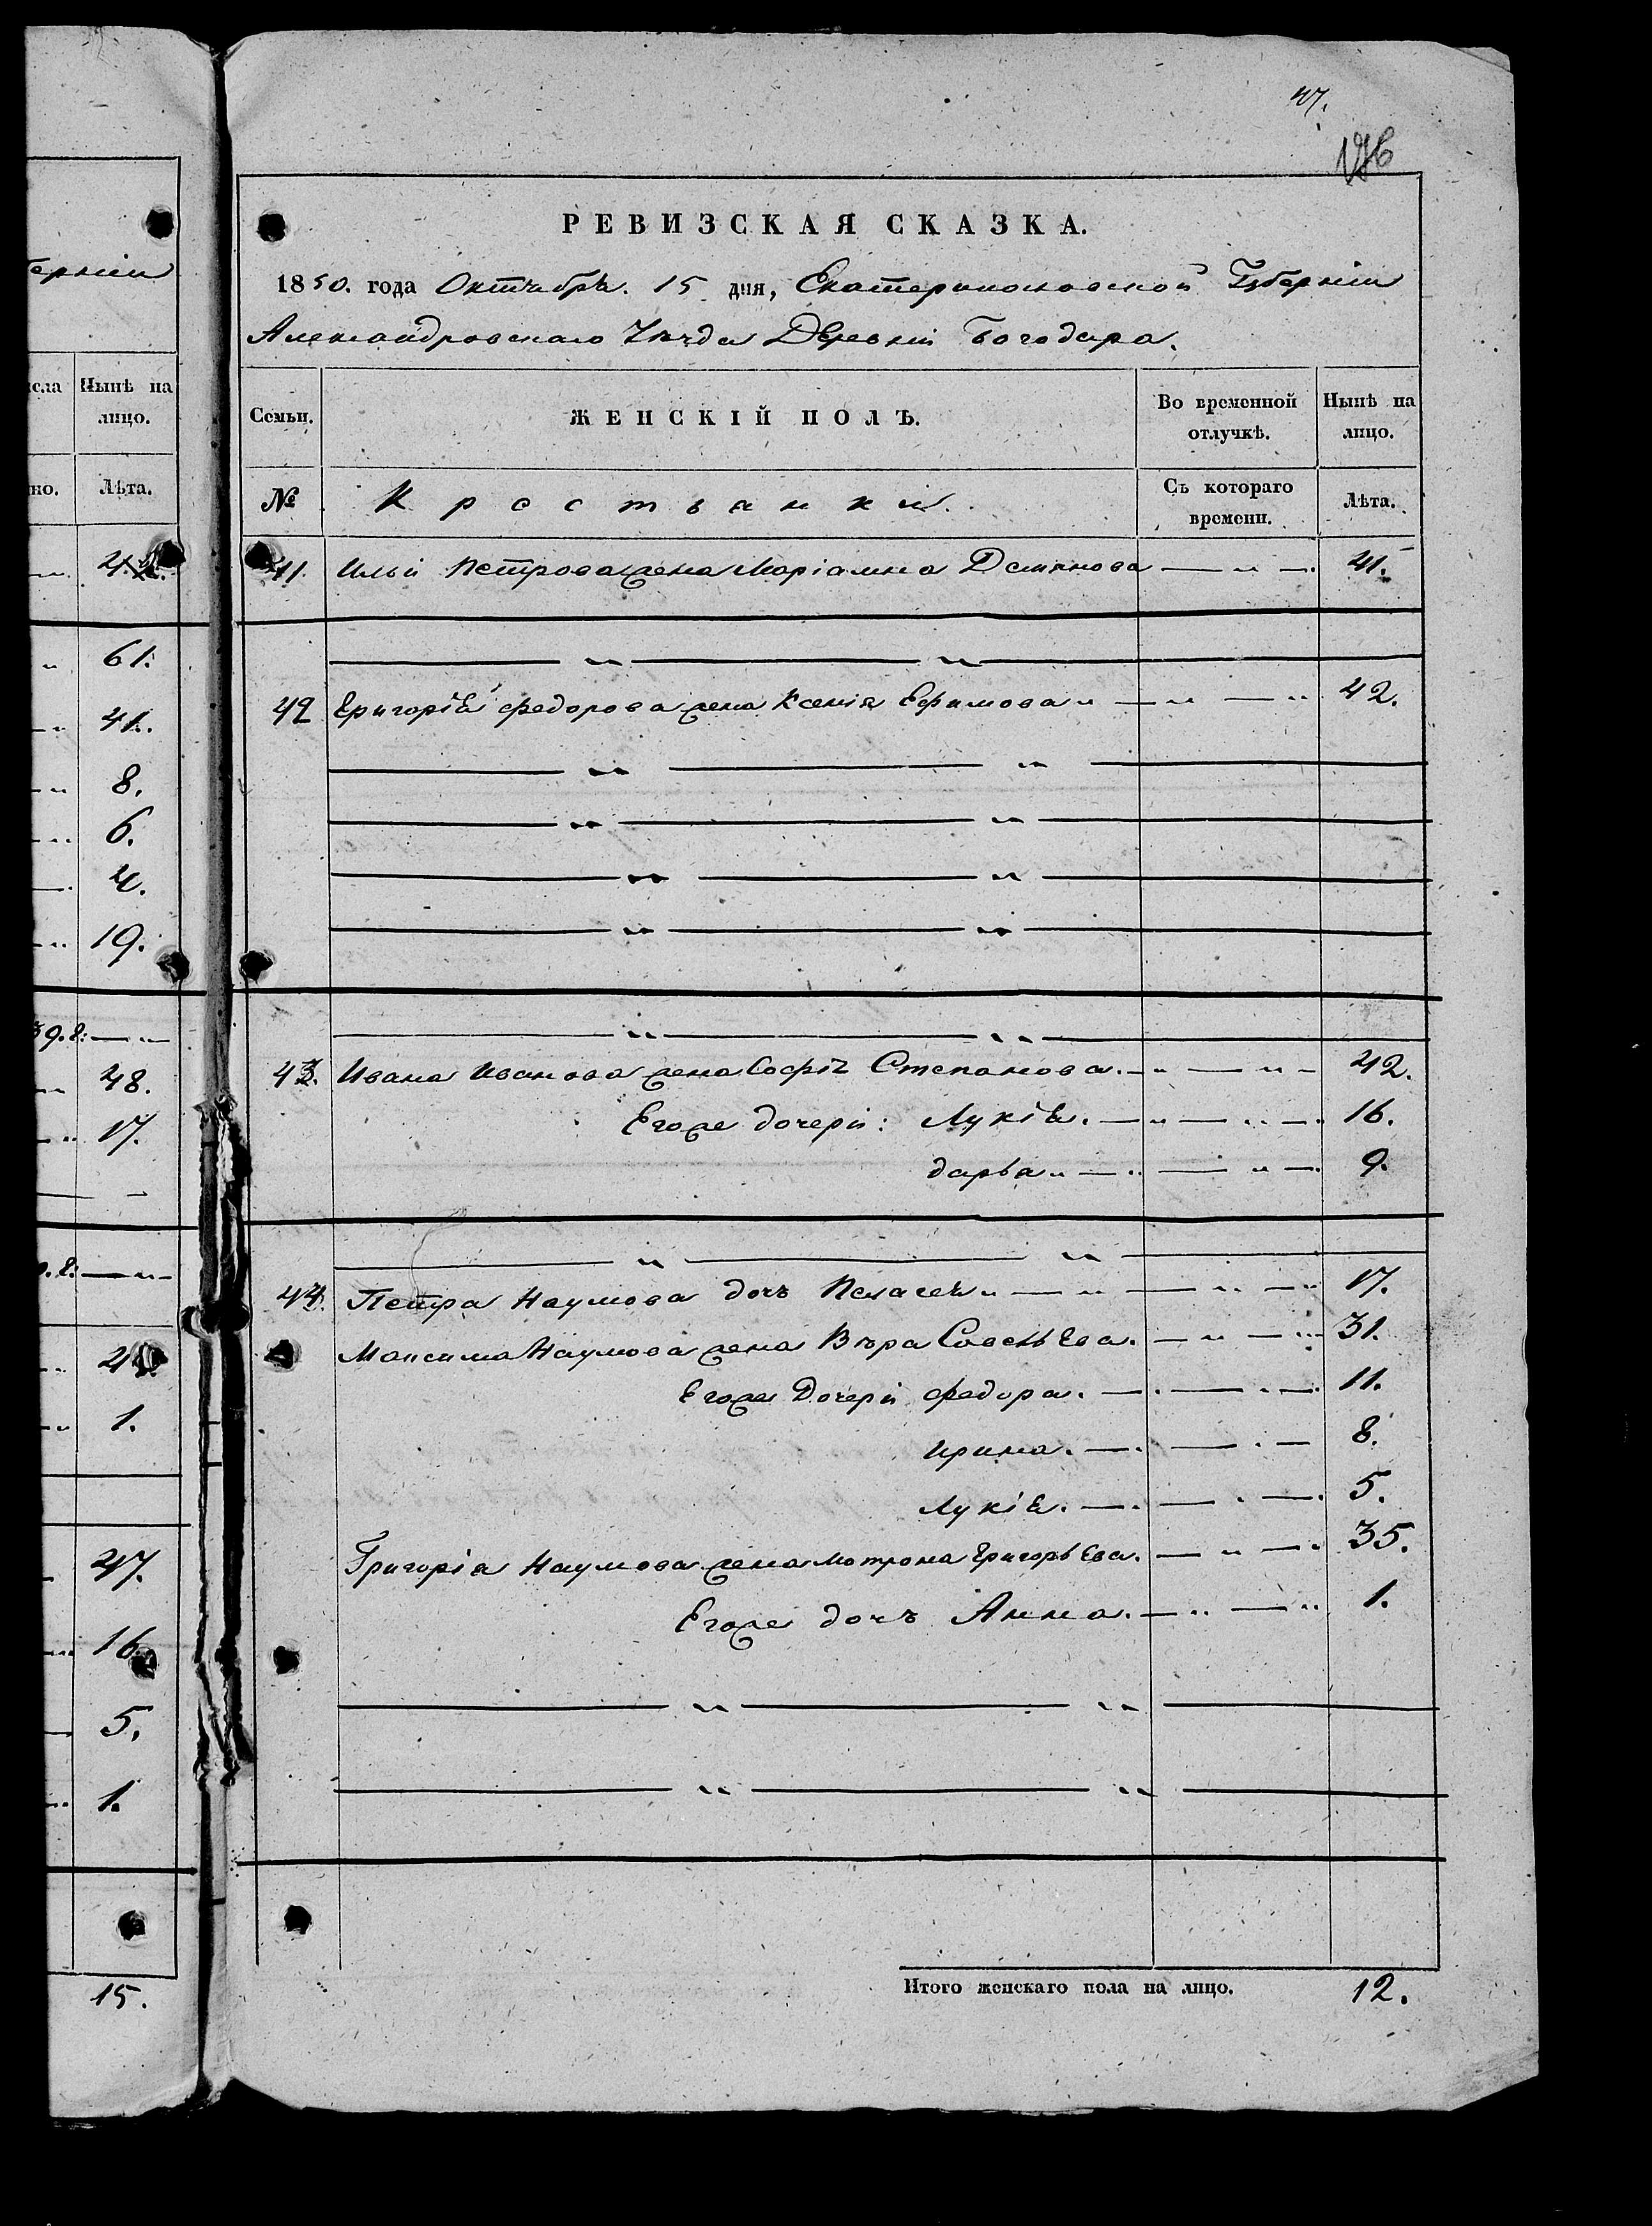 ерніи
исла Нынѣ на
лицо.
но. Лѣта.
61.
41.
8.
6.
4.
19.
39.г:
48.
17.
1.
47.
16.
5.
1.
15.
47.
РЕВИЗСКАЯ СКАЗКА.
1850. года Октября. 15 дня, Екатеринославской Губерніи
Александровскаго Уѣзда Деревни Богодара.
Семьи. ЖЕНСКІЙ ПОЛЪ. Во временной отлучкѣ. Нынѣ на лицо.
№ Крестьянки. Съ котораго времени. Лѣта.
41. Ильи Петрова жена Маріамна Демянова 41.
42 Григорія Федорова жена Ксенія Ефимова 42.
43. Ивана Иванова жена Софія Степанова. 42.
Егоже дочери: Лукія. 16.
дарья 9.
44. Петра Наумова дочъ Пелагея 17.
Максима Наумова жена Вѣра Савельева. 31.
Егоже Дочери Федора. 11.
Ирина. 8.
Лукія. 5.
Григорія Наумова жена Мотрона Григорьева. 35.
Егоже дочъ Анна. 1.
Итого женскаго пола на лицо. 12.